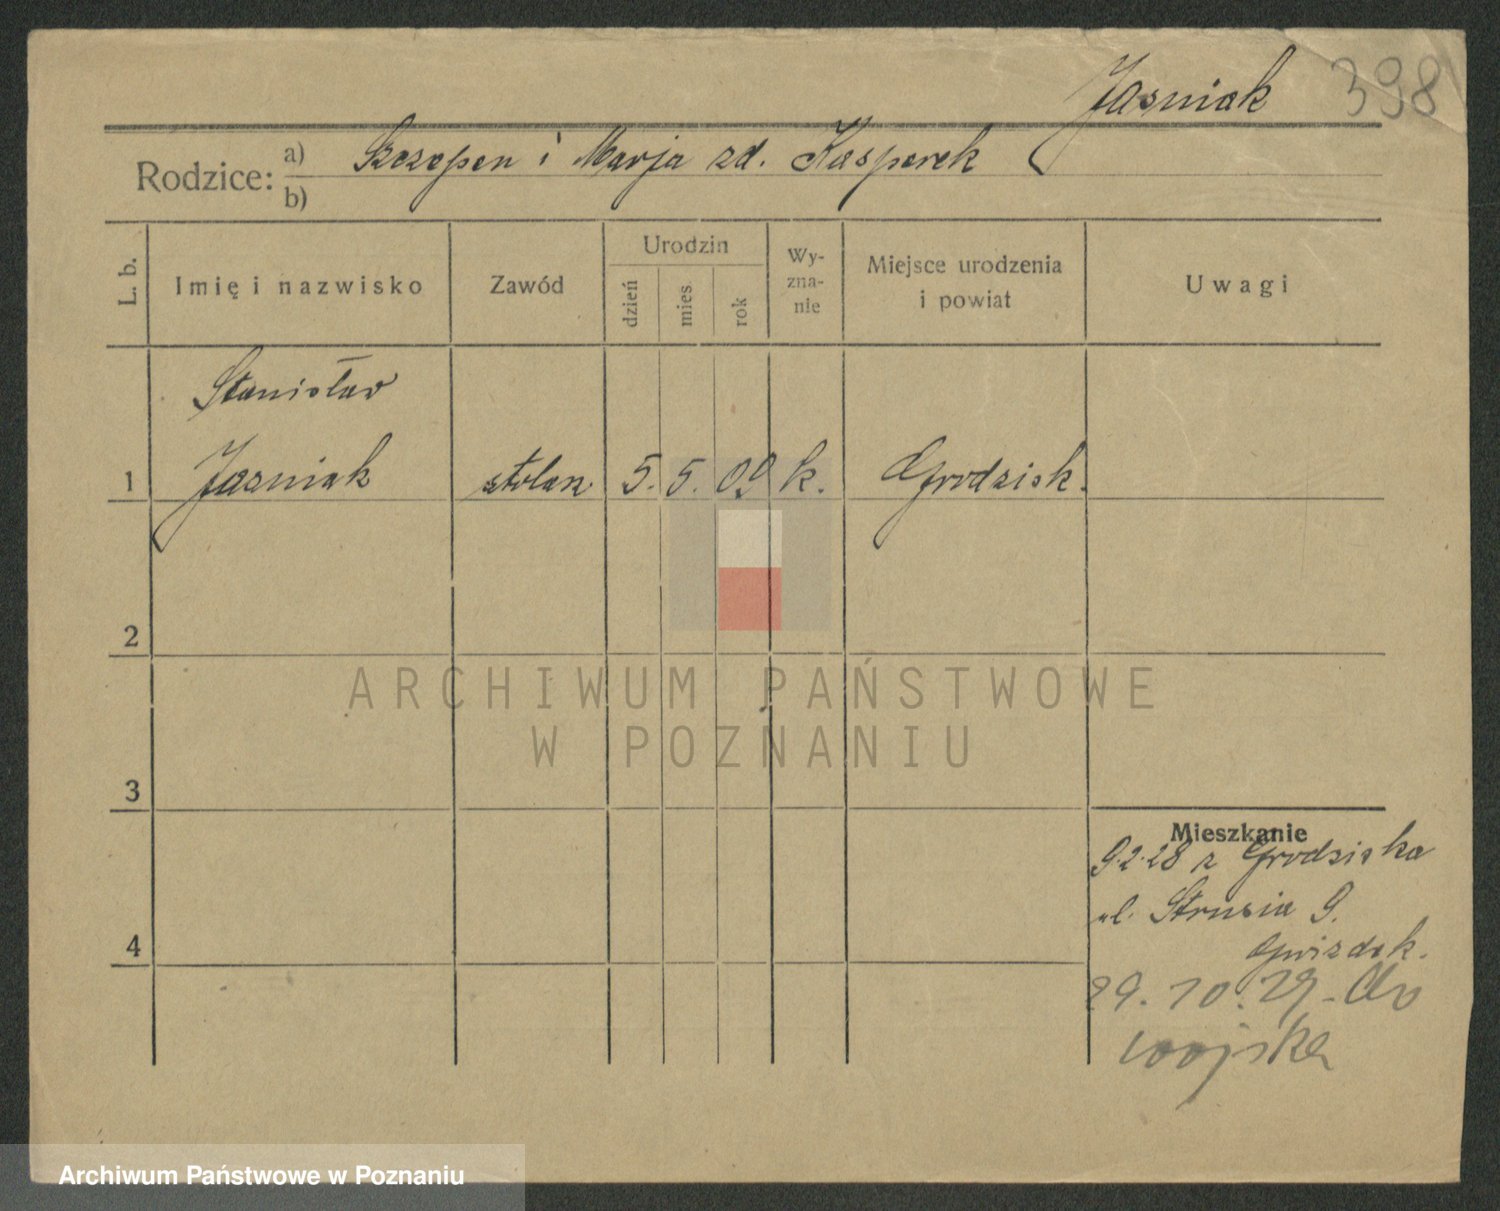 Jaśniak 398
Rodzice: a) Szczepan i Marja zd. Kasperek
b)
L. b. Imię i nazwisko Zawód Urodzin dzień mies. rok Wy-zna-nie Miejsce urodzenia i powiat Uwagi
Stanisław
1 Jaśniak stolarz 5. 5. 09 k. Grodzisk.
2
ARCHIWUM PAŃSTWOWE
W POZNANIU
3
Mieszkanie
9.2.28 z Grodziska
ul. Strusia 9.
Gwizdek.
4
29. 10. 29 - do
wojska
Archiwum Państwowe w Poznaniu